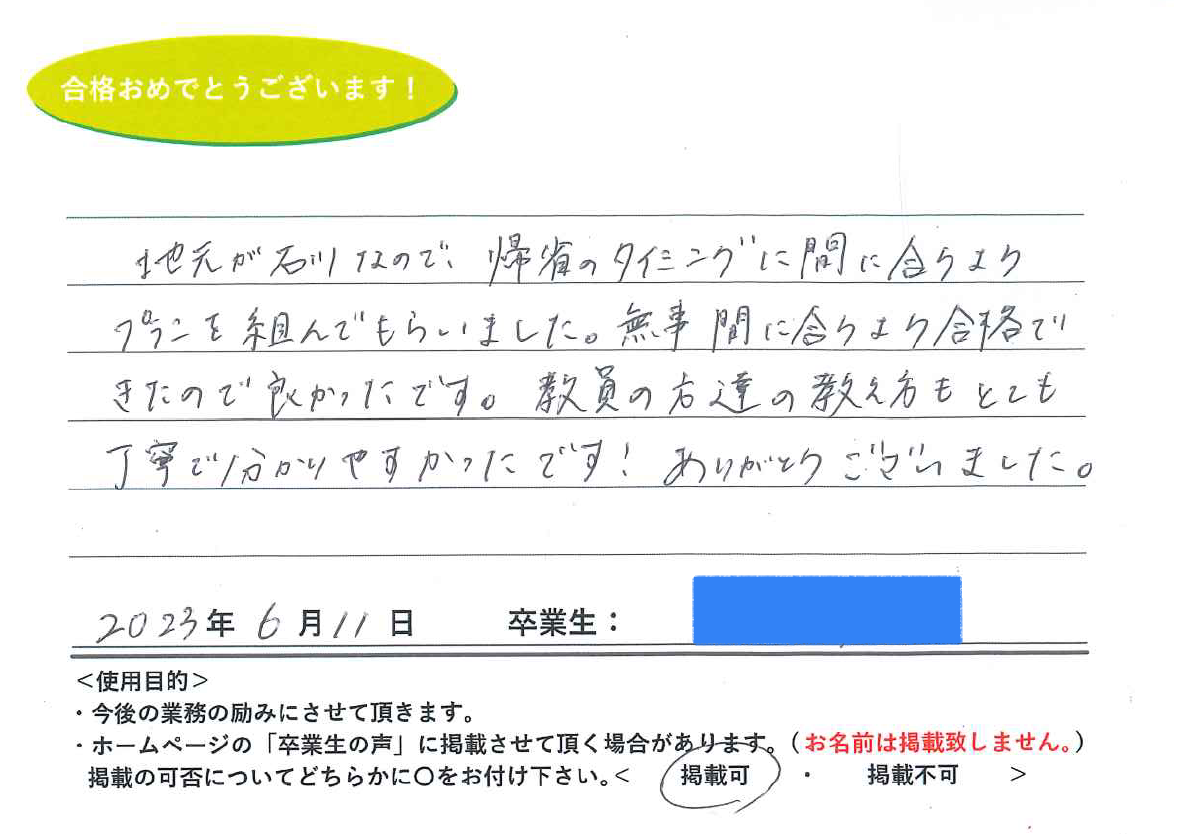 合格おめでとうございます！
地元が石川なので、帰省のタイミングに間に合うよう
プランを組んでもらいました。無事間に合うよう合格で
きたので良かったです。教員の方達の教え方もとても
丁寧で分かりやすかったです！ありがとうございました。
2023年 6月11日 卒業生：
＜使用目的＞
・今後の業務の励みにさせて頂きます。
・ホームページの「卒業生の声」に掲載させて頂く場合があります。（お名前は掲載致しません。）
掲載の可否についてどちらかに〇をお付け下さい。＜ 掲載可 ・ 掲載不可 ＞